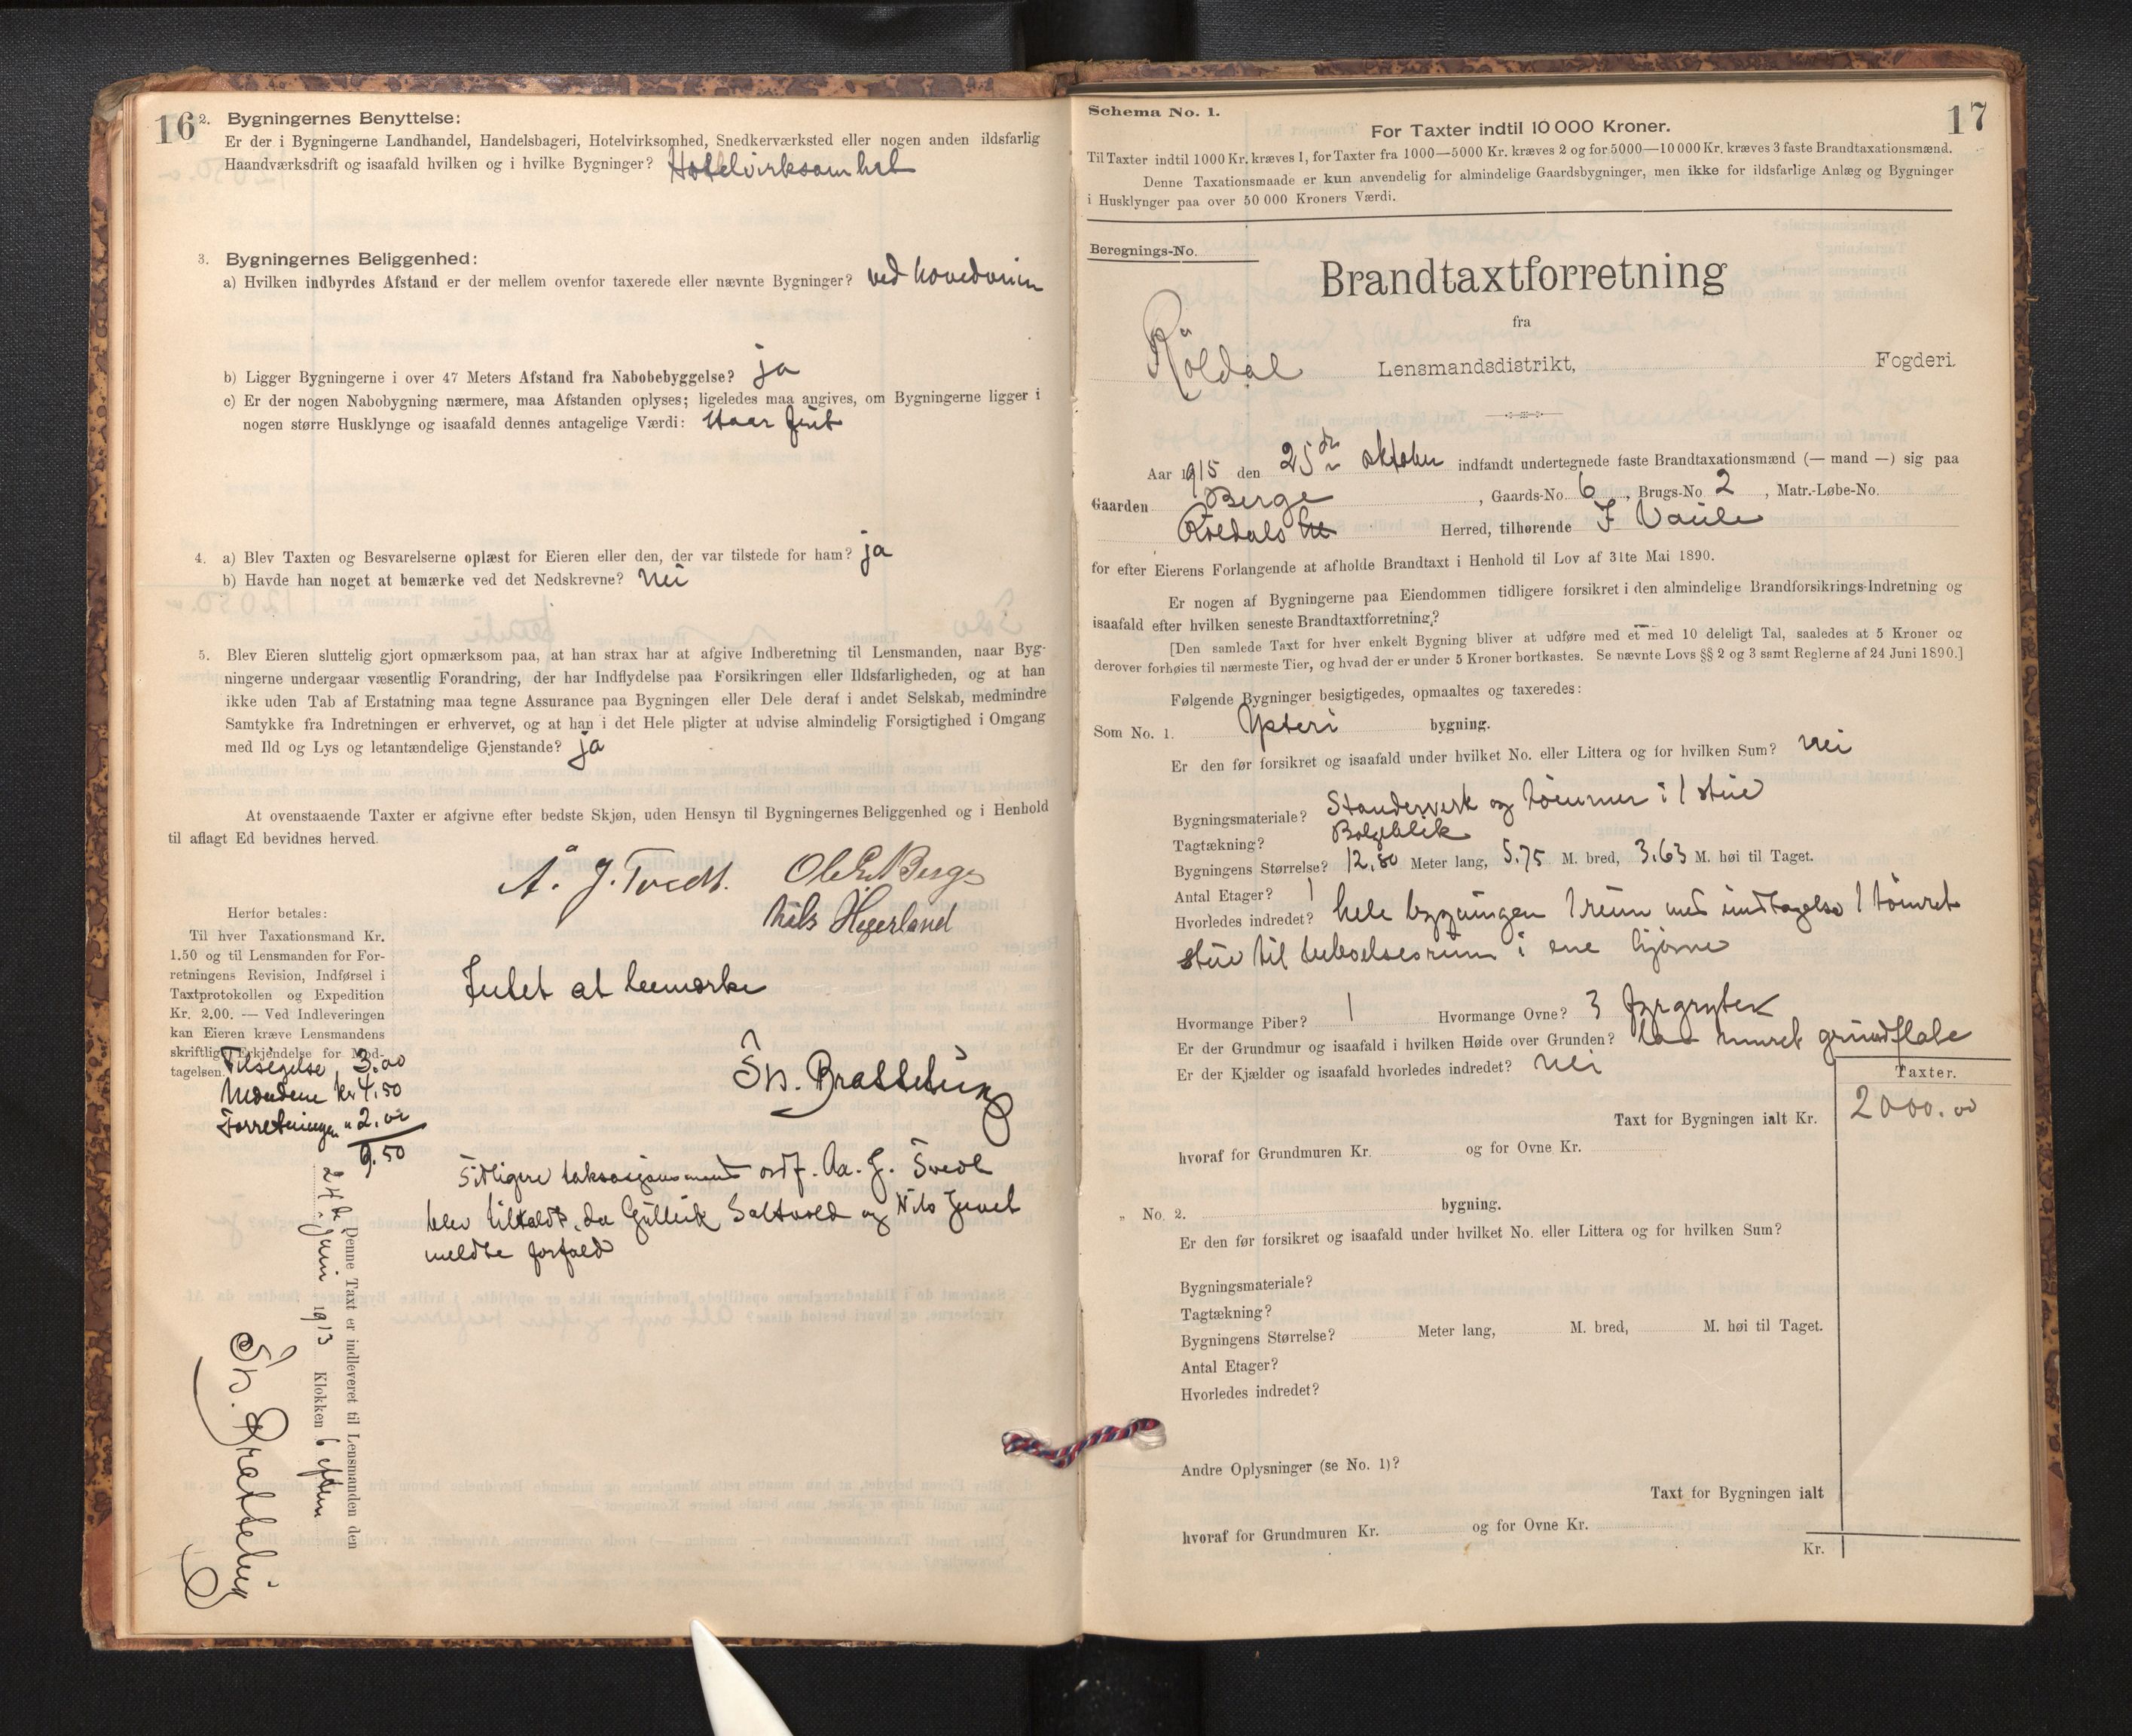 16
2. Bygningernes Benyttelse:
Er der i Bygningerne Landhandel, Handelsbageri, Hotelvirksomhed, Snedkerværksted eller nogen anden ildsfarlig
Haandværksdrift og isaafald hvilken og i hvilke Bygninger? Hotelvirksomhet
3. Bygningernes Beliggenhed:
a) Hvilken indbyrdes Afstand er der mellem ovenfor taxerede eller nævnte Bygninger? ved hovedveien
b) Ligger Bygningerne i over 47 Meters Afstand fra Nabobebyggelse? ja
c) Er der nogen Nabobygning nærmere, maa Afstanden oplyses; ligeledes maa angives, om Bygningerne ligger i
nogen større Husklynge og isaafald dennes antagelige Værdi: staar frit
4. a) Blev Taxten og Besvarelserne oplæst for Eieren eller den, der var tilstede for ham? ja
b) Havde han noget at bemærke ved det Nedskrevne? Nei
5. Blev Eieren sluttelig gjort opmærksom paa, at han strax har at afgive Indberetning til Lensmanden, naar Byg-
ningerne undergaar væsentlig Forandring, der har Indflydelse paa Forsikringen eller Ildsfarligheden, og at han
ikke uden Tab af Erstatning maa tegne Assurance paa Bygningen eller Dele deraf i andet Selskab, medmindre
Samtykke fra Indretningen er erhvervet, og at han i det Hele pligter at udvise almindelig Forsigtighed i Omgang
med Ild og Lys og letantændelige Gjenstande? ja
At ovenstaaende Taxter er afgivne efter bedste Skjøn, uden Hensyn til Bygningernes Beliggenhed og i Henhold
til aflagt Ed bevidnes herved.
Å. J. Tvedt. Ole E. Berge
Nils Hegerland
Herfor betales:
Til hver Taxationsmand Kr.
1.50 og til Lensmanden for For-
retningens Revision, Indførsel i
Taxtprotokollen og Expedition
Kr. 2.00. — Ved Indleveringen
kan Eieren kræve Lensmandens
skriftlige Erkjendelse for Mod-
tagelsen.
Intet at bemærke
Sv. Brattelig
Tilsigelse 3.00
Mændene Kr 4.50
Forretningen " 2.00
9.50
Tidligere taksasjonsmand ordf. Aa. J. Tvedt
blev tilkaldt, da Gulleik Saltvold og Nils Juvet
meldte forfald
Denne Taxt er indleveret til Lensmanden den
24de juni 1913 Klokken 6 eftm
Sv. Brattelig
17
Schema No. 1.
For Taxter indtil 10 000 Kroner.
Til Taxter indtil 1000 Kr. kræves 1, for Taxter fra 1000—5000 Kr. kræves 2 og for 5000—10 000 Kr. kræves 3 faste Brandtaxationsmænd.
Denne Taxationsmaade er kun anvendelig for almindelige Gaardsbygninger, men ikke for ildsfarlige Anlæg og Bygninger
i Husklynger paa over 50 000 Kroners Værdi.
Beregnings-No.
Brandtaxtforretning
fra
Röldal Lensmandsdistrikt, Fogderi.
Aar 1915 den 25de oktober indfandt undertegnede faste Brandtaxationsmænd (— mand —) sig paa
Gaarden Berge, Gaards-No. 6, Brugs-No. 2, Matr.-Løbe-No.
Röldals Herred, tilhørende
for efter Eierens Forlangende at afholde Brandtaxt i Henhold til Lov af 31te Mai 1890.
Er nogen af Bygningerne paa Eiendommen tidligere forsikret i den almindelige Brandforsikrings-Indretning og
isaafald efter hvilken seneste Brandtaxtforretning?
[Den samlede Taxt for hver enkelt Bygning bliver at udføre med et med 10 deleligt Tal, saaledes at 5 Kroner og
derover forhøies til nærmeste Tier, og hvad der er under 5 Kroner bortkastes. Se nævnte Lovs §§ 2 og 3 samt Reglerne af 24 Juni 1890.]
Følgende Bygninger besigtigedes, opmaaltes og taxeredes:
Som No. 1. Ysteri bygning.
Er den før forsikret og isaafald under hvilket No. eller Littera og for hvilken Sum? Nei
Bygningsmateriale? Standerverk og tömmer i 1 stue
Tagtækning? Bolgeblik
Bygningens Størrelse? 12,80 Meter lang, 5.75 M. bred, 3.63 M. høi til Taget.
Antal Etager? 1
Hvorledes indredet? hele bygningen 1 rum med indtagelse 1 tömret
stue til beboelsesrum i ene hjørne
Hvormange Piber? 1 Hvormange Ovne? 3 fyrgryter
Er der Grundmur og isaafald i hvilken Høide over Grunden? muret grundflate
Er der Kjælder og isaafald hvorledes indredet? Nei
Taxter.
Taxt for Bygningen ialt Kr. 2000.00
hvoraf for Grundmuren Kr. og for Ovne Kr.
„ No. 2. bygning.
Er den før forsikret og isaafald under hvilket No. eller Littera og for hvilken Sum?
Bygningsmateriale?
Tagtækning?
Bygningens Størrelse? Meter lang, M. bred, M. høi til Taget.
Antal Etager?
Hvorledes indredet?
Andre Oplysninger (se No. 1)?
Taxt for Bygningen ialt
hvoraf for Grundmuren Kr. og for Ovne Kr.
Kr.